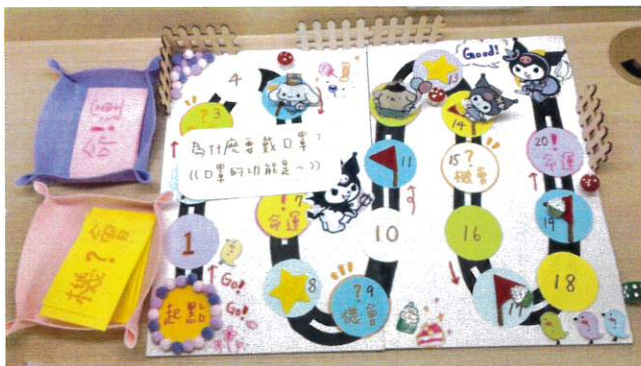 命!運
機?會
4
?3
為什麼要戴口罩?
((口罩的功能是~))
7
!命運
1
Go!
Go!
起點
8
?9
機會
10
11
Good!
13
14
15?
機會
16
17
18
19
20!
命運